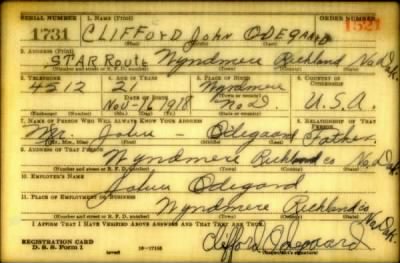 SERIAL NUMBER 1. NAME (Print) ORDER NUMBER
1731 CLIFFORD John ODEGARD 1521
(First) (Middle) (Last)
2. ADDRESS (Print)
STAR Route Wyndmere Richland No.Dak.
(Number and street or R. F. D. number) (Town) (County) (State)
3. TELEPHONE 4. AGE IN YEARS 5. PLACE OF BIRTH 6. COUNTRY OF CITIZENSHIP
4512 2 Wyndmere
Nov-16 1918 No.D. U.S.A.
7. NAME OF PERSON WHO WILL ALWAYS KNOW YOUR ADDRESS 8. RELATIONSHIP OF THAT PERSON
Mr. John - Odegaard Father
(Mr., Mrs., Miss) (First) (Middle) (Last)
9. ADDRESS OF THAT PERSON
Wyndmere Richland co No.Dak.
(Number and street or R. F. D. number) (Town) (County) (State)
10. EMPLOYER'S NAME
John Odegard
11. PLACE OF EMPLOYMENT OR BUSINESS
Wyndmere Richland co No.Dak.
(Number and street or R. F. D. number) (Town) (County) (State)
I AFFIRM THAT I HAVE VERIFIED ABOVE ANSWERS AND THAT THEY ARE TRUE.
REGISTRATION CARD
D. S. S. Form 1 16-17105 Clifford Odegaard
(Registrant's signature)